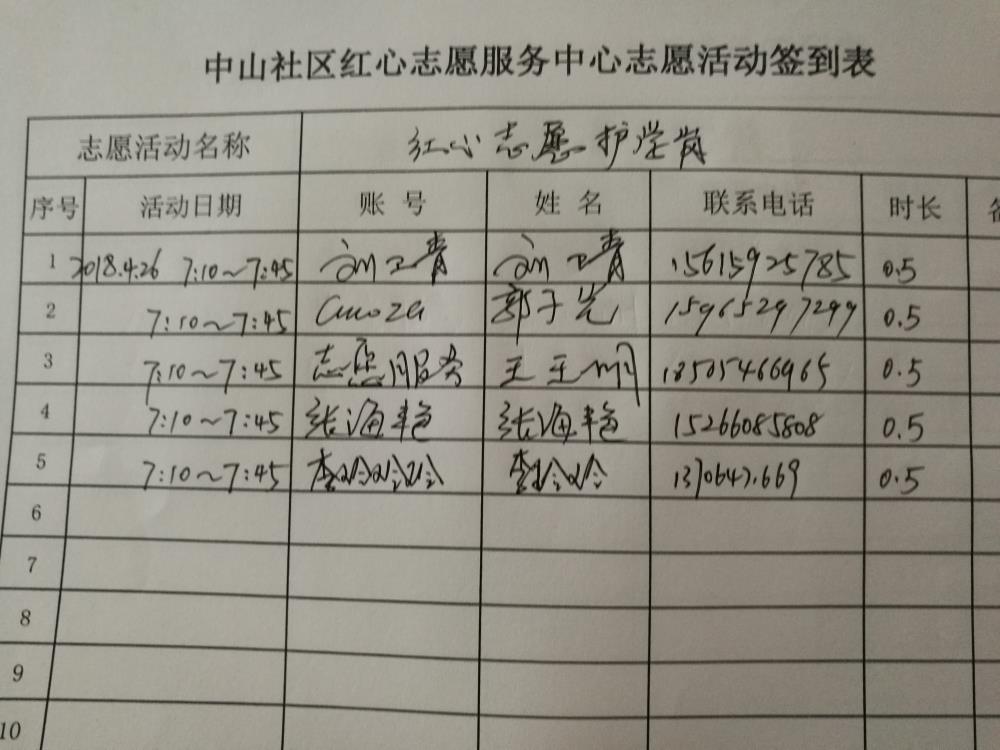 中山社区红心志愿服务中心志愿活动签到表
志愿活动名称 红心志愿护学岗
序号 活动日期 账号 姓名 联系电话 时长
1 2018.4.26 7:10~7:45 刘卫青 刘卫青 15615925785 0.5
2 7:10~7:45 郭子光 15965297299 0.5
3 7:10~7:45 志愿服务 18505466965 0.5
4 7:10~7:45 张海艳 张海艳 15266085808 0.5
5 7:10~7:45 0.5
6
7
8
9
10